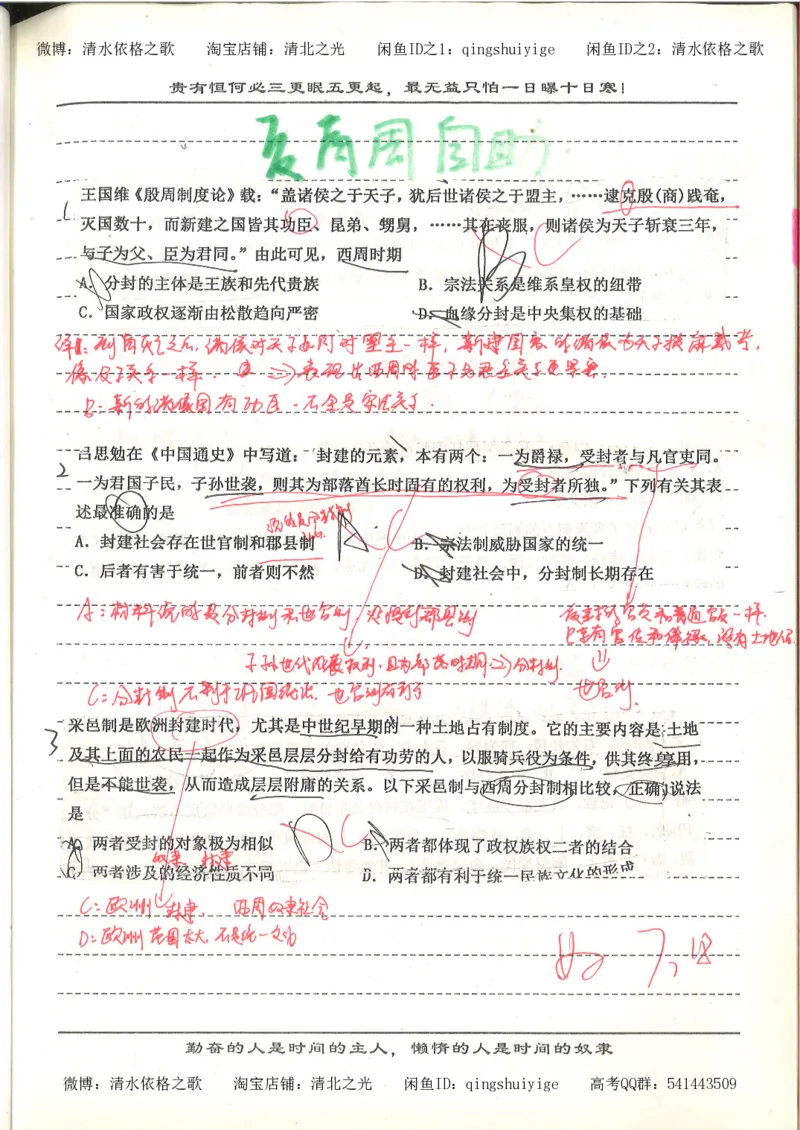 微博：清水依格之歌 淘宝店铺：清北之光 闲鱼ID之1：qingshuiyige 闲鱼ID之2：清水依格之歌
贵有恒何必三更眠五更起，最无益只怕一日曝十日寒！
夏商周自助
1
王国维《殷周制度论》载：“盖诸侯之于天子，犹后世诸侯之于盟主，……逮克殷(商)践奄，
灭国数十，而新建之国皆其功臣、昆弟、甥舅，……其在丧服，则诸侯为天子斩衰三年，
与子为父、臣为君同。”由此可见，西周时期
A. 分封的主体是王族和先代贵族 B. 宗法关系是维系皇权的纽带
C. 国家政权逐渐由松散趋向严密 D. 血缘分封是中央集权的基础
B：新的诸侯国有功臣，不全是宗法关系。
2
吕思勉在《中国通史》中写道：“封建的元素，本有两个：一为爵禄，受封者与凡官吏同。
一为君国子民，子孙世袭，则其为部落酋长时固有的权利，为受封者所独。”下列有关其表
述最准确的是
A. 封建社会存在世官制和郡县制 B. 宗法制威胁国家的统一
C. 后者有害于统一，前者则不然 D. 封建社会中，分封制长期存在
A：材料说的是分封制和世官制，没提到郡县制
世官制
3
采邑制是欧洲封建时代，尤其是中世纪早期的一种土地占有制度。它的主要内容是:土地
及其上面的农民一起作为采邑层层分封给有功劳的人，以服骑兵役为条件，供其终身享用，
但是不能世袭，从而造成层层附庸的关系。以下采邑制与西周分封制相比较，正确说法
是
A. 两者受封的对象极为相似 B. 两者都体现了政权族权二者的结合
C. 两者涉及的经济性质不同 D. 两者都有利于统一民族文化的形成
C：欧洲封建，西周奴隶社会
D：欧洲范围太大，不是统一文化
7,18
勤奋的人是时间的主人，懒惰的人是时间的奴隶
微博：清水依格之歌 淘宝店铺：清北之光 闲鱼ID：qingshuiyige 高考QQ群：541443509